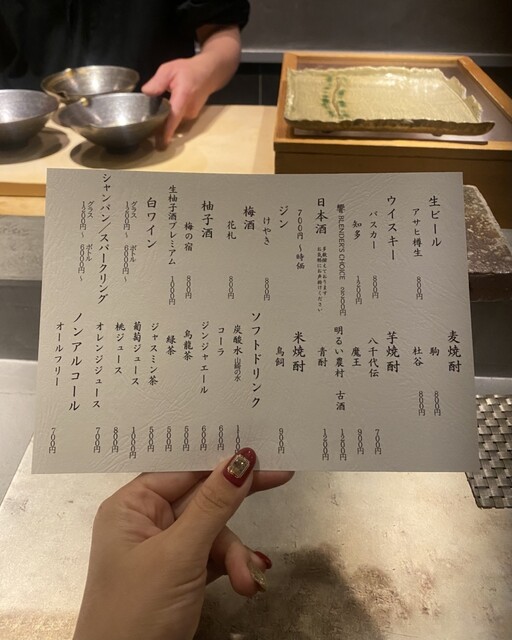 生ビール
アサヒ樽生 800円
ウイスキー
バスカー 800円
知多 1500円
響 BLENDER'S CHOICE
日本酒
700円〜時価
多数揃えております
お気軽にお声掛けください
ジン
けやき 800円
梅酒
花札 800円
柚子酒
梅の宿 800円
生柚子酒プレミアム 1000円
白ワイン
グラス 1200円〜
ボトル 6000円〜
シャンパン／スパークリング
グラス 1200円〜
ボトル 6000円〜
麦焼酎
駒 800円
杜谷 800円
芋焼酎
八千代伝 700円
魔王 900円
明るい農村 古酒 1200円
青酎 1200円
米焼酎
鳥飼 900円
ソフトドリンク
炭酸水 山崎の水
コーラ 600円
ジンジャエール 600円
烏龍茶 500円
緑茶 500円
ジャスミン茶 500円
葡萄ジュース 1000円
桃ジュース 800円
オレンジジュース 700円
ノンアルコール
オールフリー 700円